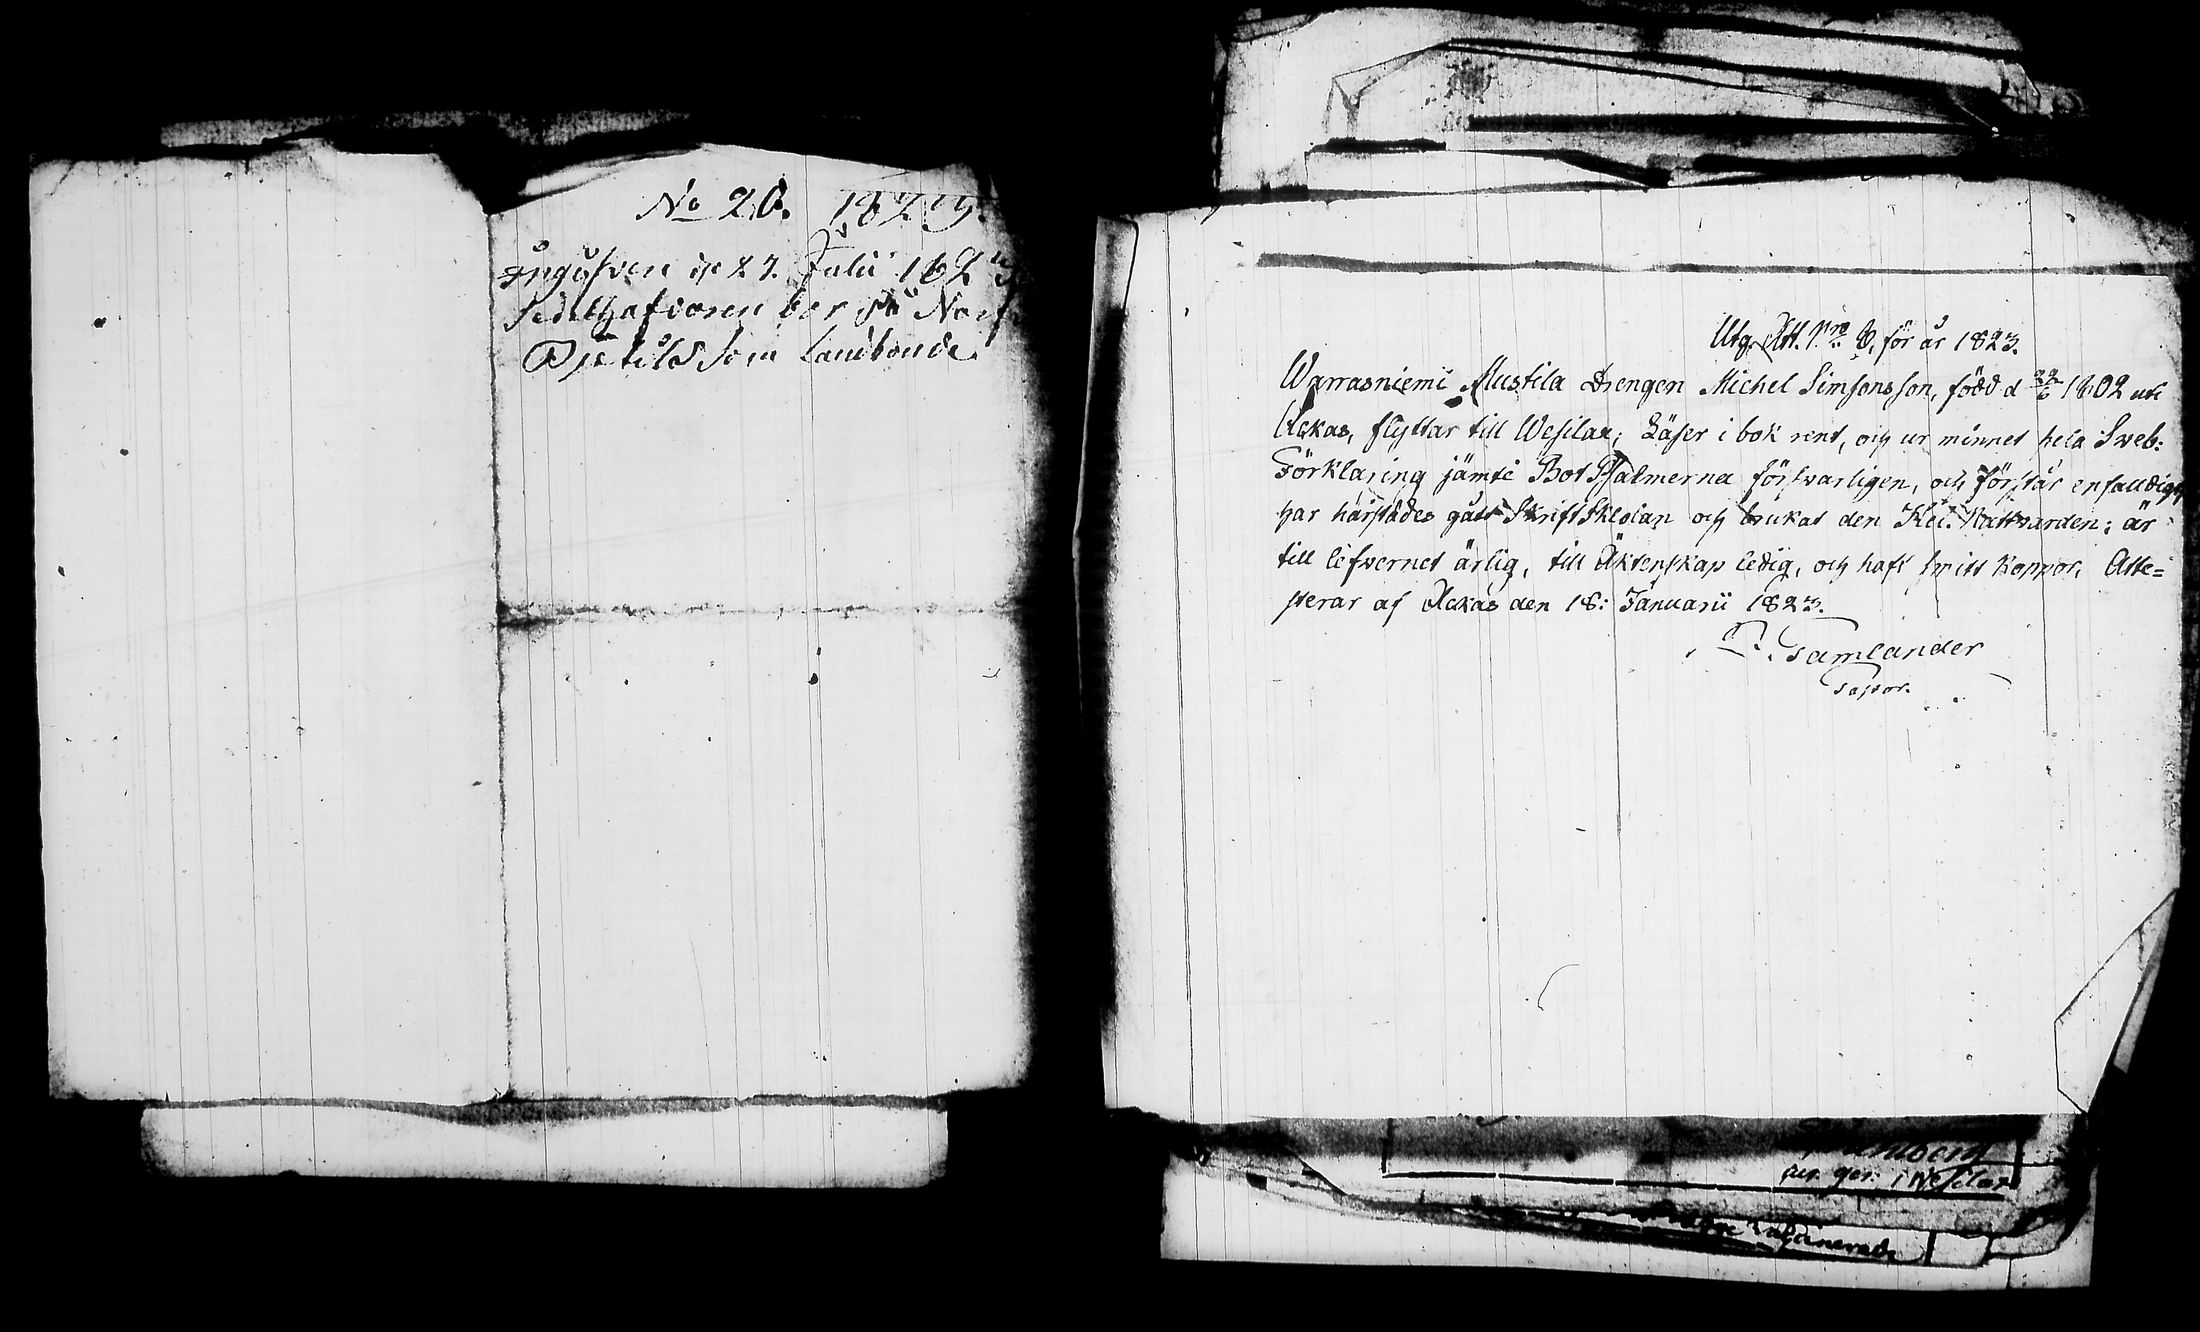 No 20. 1823.
Ingifven d. 27. Julii 1823
Sedelhafvaren bor på
som Landbonde.
Utg. Att. Nro 8, för år 1823.
Warrasniemi Mustila Drengen Michel Simsonsson, född d 22/6 1802 uti
Ackas, flyttar till Wesilax; Läser i bok rent, och ur minnet hela Sveb:
Förklaring jämte Bot Psalmerna försvarligen, och förstår enfaldigt,
har härstädes gått Skriftskolan och brukat den Hel. Nattvarden; är
till lefvernet ärlig, till Äktenskap ledig, och haft smitt Koppor. Atte=
sterar af Ackas den 18: Januarii 1823.
Tamlander
Pastor.
i Wesilax